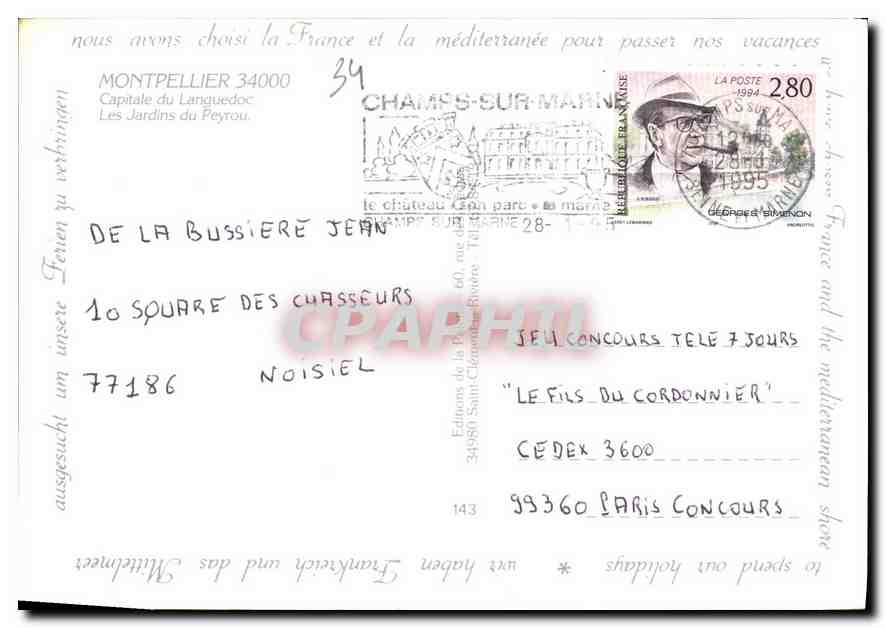 nous avons choisi la France et la méditerranée pour passer nos vacances
MONTPELLIER 34000
Capitale du Languedoc
Les Jardins du Peyrou.
34
CHAMPS-SUR-MARNE
le château son parc la marne
CHAMPS SUR MARNE 28-1-95
LA POSTE
1994
2,80
RÉPUBLIQUE FRANÇAISE
GEORGES SIMENON
1995
SEINE ET MARNE
DE LA BUSSIERE JEAN
10 SQUARE DES CHASSEURS
77186 NOISIEL
CPAPHIL
Editions de la
60, rue des
34980 Saint-Clément-la-Rivière
143
JEU CONCOURS TELE 7 JOURS
"LE FILS DU CORDONNIER"
CEDEX 3600
99360 PARIS CONCOURS
we have chosen France and the mediterranean shore
to spend our holidays * wir haben Frankreich und das Mittelmeer
ausgesucht um unsere Ferien zu verbringen